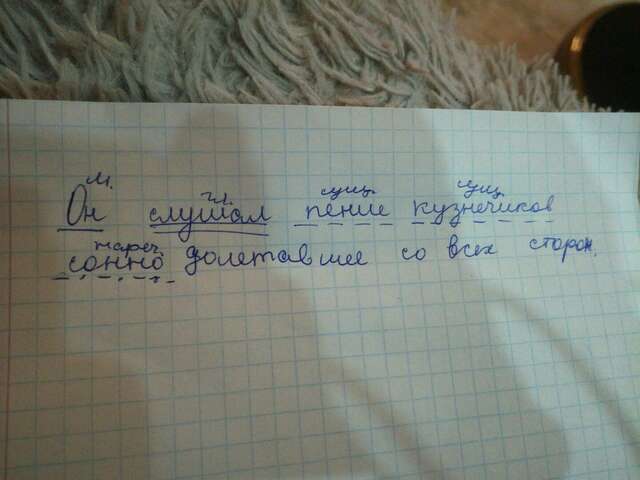 м. гл. сущ. сущ.
Он слушал пение кузнечиков
нареч.
сонно долетавшее со всех сторон.